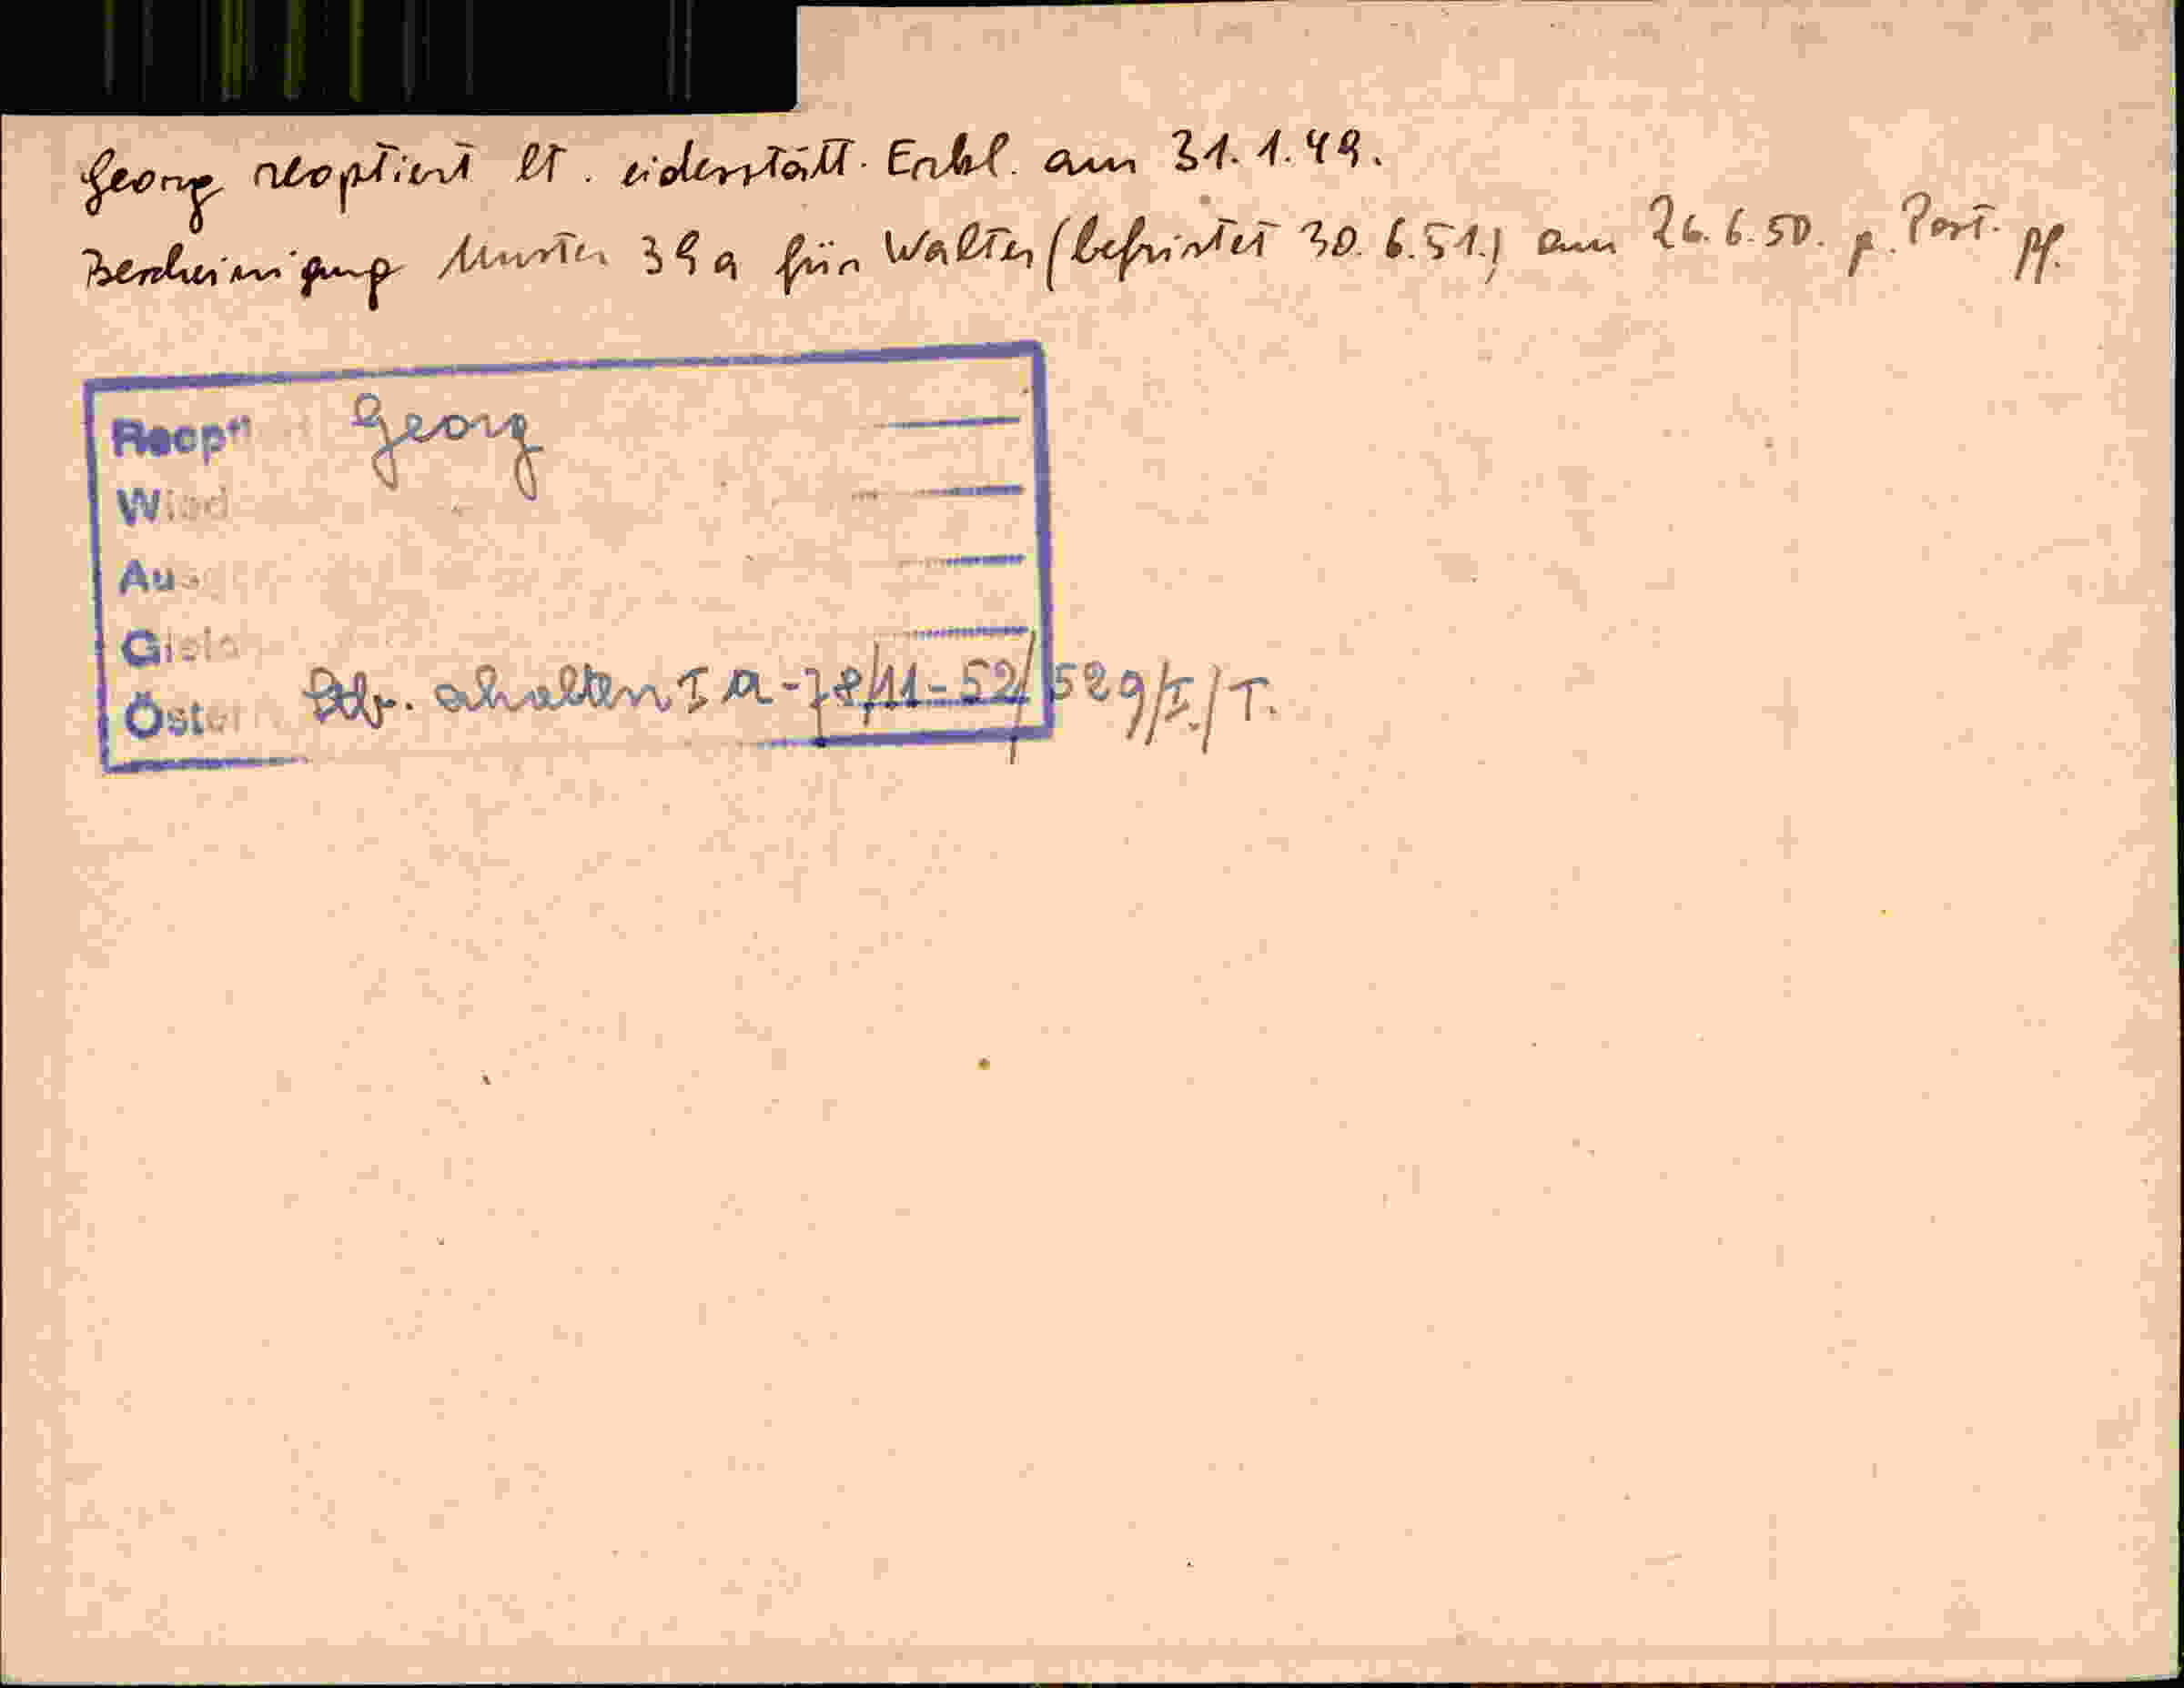 Georg reoptiert lt. eidesstatt. Erkl. am 31.1.49.
Bescheinigung Muster 39a für Walter (befristet 30.6.51.) am 26.6.50. p. Post. pf.
Reopt Georg
Wied
Aus
Öster erhalten I a - 78/11-52/529/I./T.